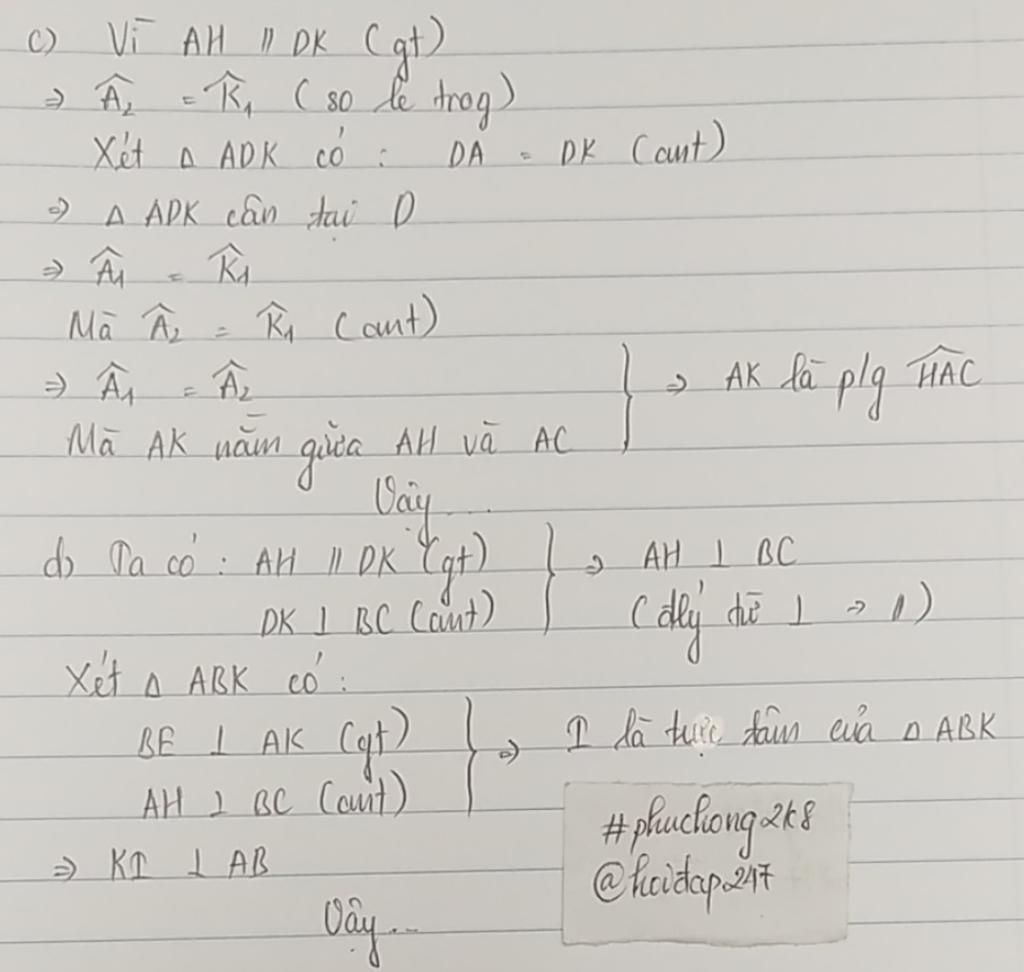 c) Vì AH // DK (gt)
=> Â₂ = K̂₁ (so le trog)
Xét Δ ADK có : DA = DK (cmt)
=> Δ ADK cân tại D
=> Â₁ = K̂₁
Mà Â₂ = K̂₁ (cmt)
=> Â₁ = Â₂
Mà AK nằm giữa AH và AC
} => AK là p/g HAC
Vậy...
d) Ta có : AH // DK (gt)
DK ⊥ BC (cmt)
} => AH ⊥ BC
(đlý từ ⊥ -> //)
Xét Δ ABK có :
BE ⊥ AK (gt)
AH ⊥ BC (cmt)
} => I là trực tâm của Δ ABK
=> KI ⊥ AB
Vậy...
#phuchong2k8
@hoidap247